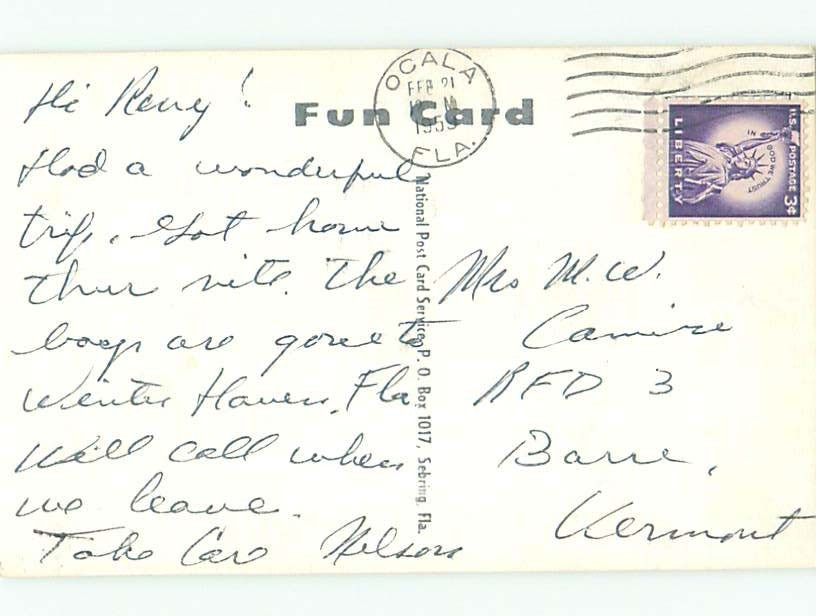 Hi Reny!
Had a wonderful
trip. Got home
thur nite. The
boys are gone to
Winter Haven, Fla
Will call when
we leave.
Take Care Nelson
Fun Card
OCALA
FEB 21
FLA.
U.S. POSTAGE 3¢
IN GOD WE TRUST
LIBERTY
National Post Card Service, P. O. Box 1017, Sebring, Fla.
Mrs M. W.
Camire
RFD 3
Barre,
Vermont